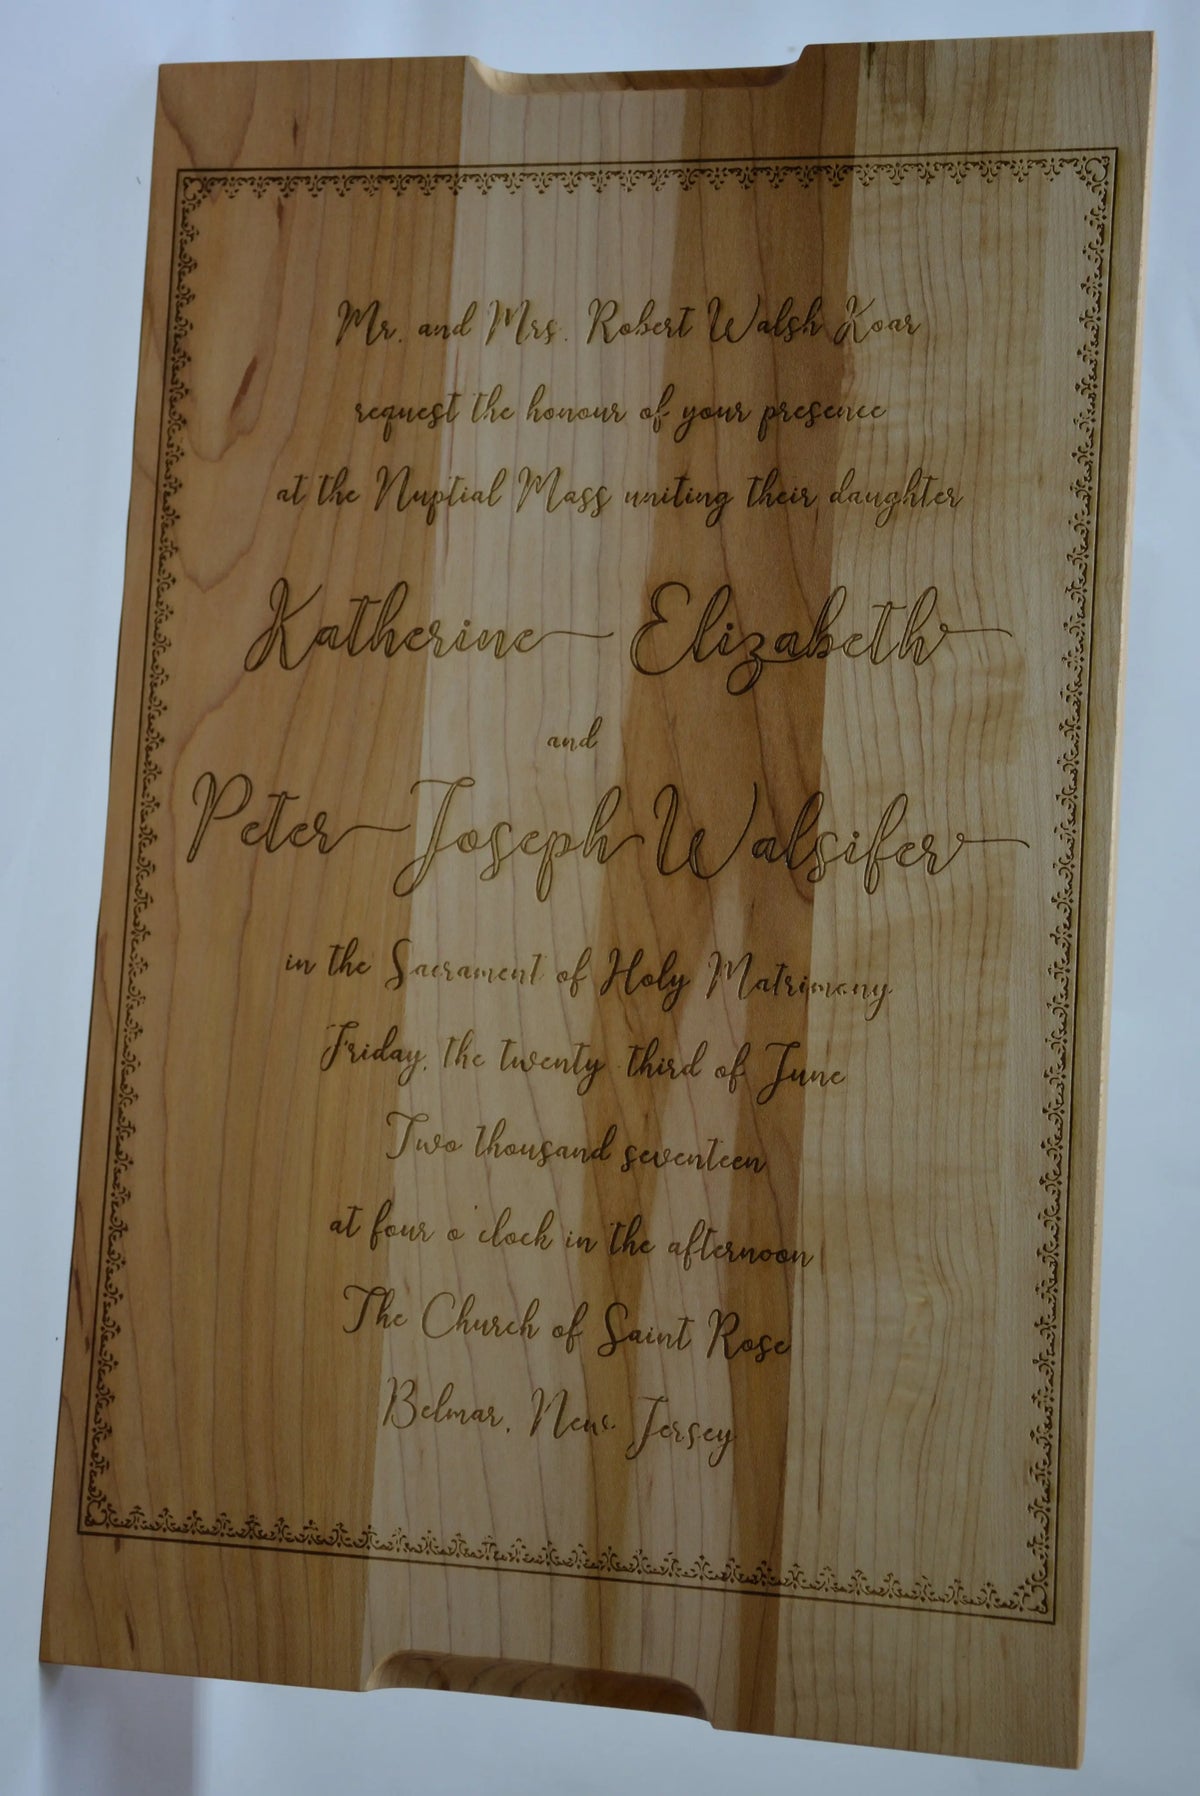 Mr. and Mrs. Robert Walsh Koar
request the honour of your presence
at the Nuptial Mass uniting their daughter
Katherine Elizabeth
and
Peter Joseph Walsifer
in the Sacrament of Holy Matrimony
Friday, the twenty third of June
Two thousand seventeen
at four o'clock in the afternoon
The Church of Saint Rose
Belmar, New Jersey